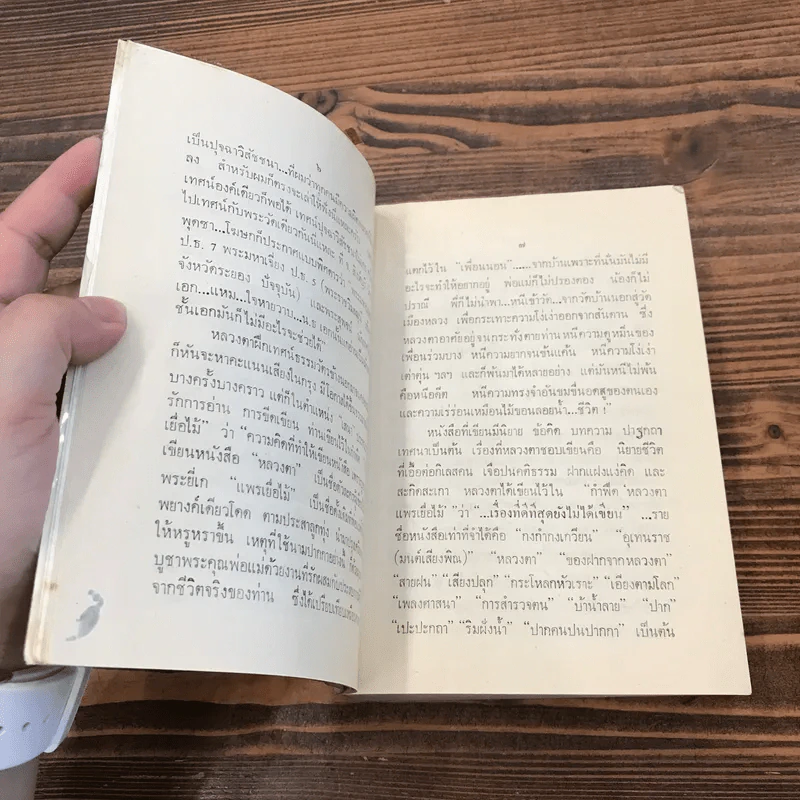 ๖
เป็นปุจฉาวิสัชชนา...ที่ผมว่าทุกคนมีความ
ลง สำหรับผมก็ตรงจะเล่าให้ฟัง
เทศน์องค์เดียวก็พอได้ เทศน์ปุจฉาวิสัชนา
ไปเทศน์กับพระวัดเดียวกันนี่แหละ ที่
พุดซา...โฆษกก็ประกาศแบบพิศดารว่า
ป.ธ. 7 พระมหาเจี่ยง ป.ธ. 5
จังหวัดระยอง ปัจจุบัน) และพระ
เอก...แหม...ใจหายวาบ...น.ธ เอก
ชั้นเอกมันก็ไม่มีอะไรจะช่วยได้"
หลวงตาฝึกเทศน์ธรรมวัตรข้าง
ก็หันจะหาคะแนนเสียงในกรุง มีโอกาส
บางครั้งบางคราว แต่ก็ในตำแหน่ง
รักการอ่าน การขีดเขียน ท่านเขียนไว้ใน
เยื่อไม้" ว่า "ความคิดที่ทำให้เขียนหนังสือ
เขียนหนังสือ "หลวงตา" เป็นชื่อตัว
พระยี่เก "แพรเยื่อไม้" เป็นชื่อ
พยางค์เดียวโดด ตามประสาลูกทุ่ง
ให้หรูหราขึ้น เหตุที่ใช้นามปากกาอย่างนี้
บูชาพระคุณพ่อแม่ด้วยงานที่รักผสมกับ
จากชีวิตจริงของท่าน ซึ่งได้เปรียบเทียบ
๗
แตกไว้ใน "เพื่อนนอน"......จากบ้านเพราะที่นั่นมันไม่มี
อะไรจะทำให้อยากอยู่ พ่อแม่ก็ไม่ปรองดอง น้องก็ไม่
ปรานี พี่ก็ไม่นำพา...หนีเข้าวัด...จากวัดบ้านนอกสู่วัด
เมืองหลวง เพื่อกระเทาะความโง่เง่าออกจากสันดาน ซึ่ง
หลวงตาอาศัยอยู่จนกระทั่งตายท่าน หนีความดูหมิ่นของ
เพื่อนร่วมบาง หนีความยากจนข้นแค้น หนีความโง่เง่า
เต่าตุ่น ฯลฯ และก็พ้นมาได้หลายอย่าง แต่มันหนีไม่พ้น
คือหนีอดีต หนีความทรงจำอันขมขื่นอดสูของตนเอง
และความเร่ร่อนเหมือนไม้ขอนลอยน้ำ...ชีวิต !"
หนังสือที่เขียนมีนิยาย ข้อคิด บทความ ปาฐกถา
เทศนาเป็นต้น เรื่องที่หลวงตาชอบเขียนคือ นิยายชีวิต
ที่เอื้อต่อกิเลสคน เจือปนคติธรรม ฝากแฝงแง่คิด และ
สะกิดสะเกา หลวงตาได้เขียนไว้ใน "กำพืด 'หลวงตา
แพรเยื่อไม้' "ว่า "...เรื่องที่ดีที่สุดยังไม่ได้เขียน" ...ราย
ชื่อหนังสือเท่าที่จำได้คือ "กงกำกงเกวียน" "อุเทนราช
(มนต์เสียงพิณ)" "หลวงตา" "ของฝากจากหลวงตา"
"สายฝน" "เสียงปลุก" "กระโหลกหัวเราะ" "เอียงตามโลก"
"เพลงศาสนา" "การสำรวจตน" "บ้าน้ำลาย" "ปาก"
"เปะปะกถา" "ริมฝั่งน้ำ" "ปากคนปนปากกา" เป็นต้น